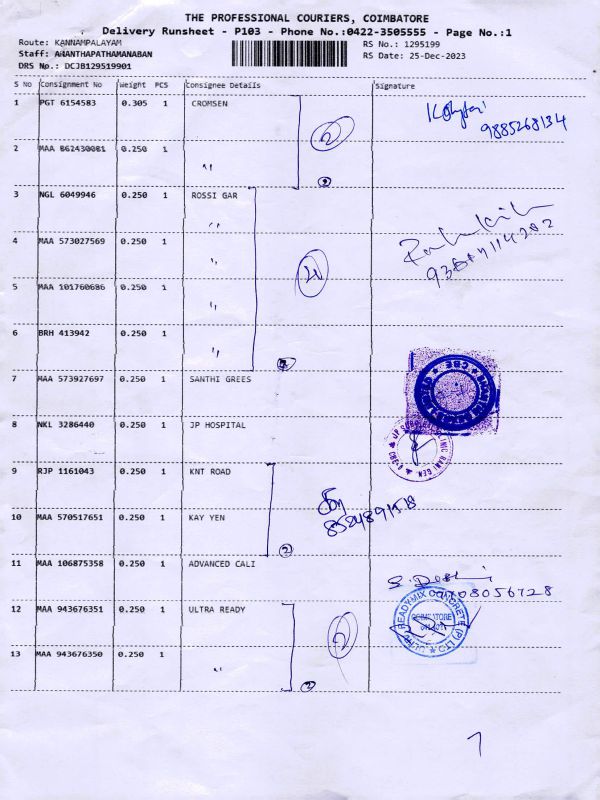 THE PROFESSIONAL COURIERS, COIMBATORE
Delivery Runsheet - P103 - Phone No.:0422-3505555 - Page No.:1
Route: KANNAMPALAYAM
RS No.: 1295199
Staff: ANANTHAPATHAMANABAN
RS Date: 25-Dec-2023
DRS No.: DCJB129519901
S No Consignment No Weight PCS Consignee Details Signature
1 PGT 6154583 0.305 1 CROMSEN
9885268134
2 MAA 862430081 0.250 1 "
3 NGL 6049946 0.250 1 ROSSI GAR
4 MAA 573027569 0.250 1 "
5 MAA 101760686 0.250 1 "
6 BRH 413942 0.250 1 "
7 MAA 573927697 0.250 1 SANTHI GREES
8 NKL 3286440 0.250 1 JP HOSPITAL
9 RJP 1161043 0.250 1 KNT ROAD
10 MAA 570517651 0.250 1 KAY YEN
11 MAA 106875358 0.250 1 ADVANCED CALI
12 MAA 943676351 0.250 1 ULTRA READY
ULTRA READY-MIX CONCRETE (P) LTD
COIMBATORE
13 MAA 943676350 0.250 1 "
7